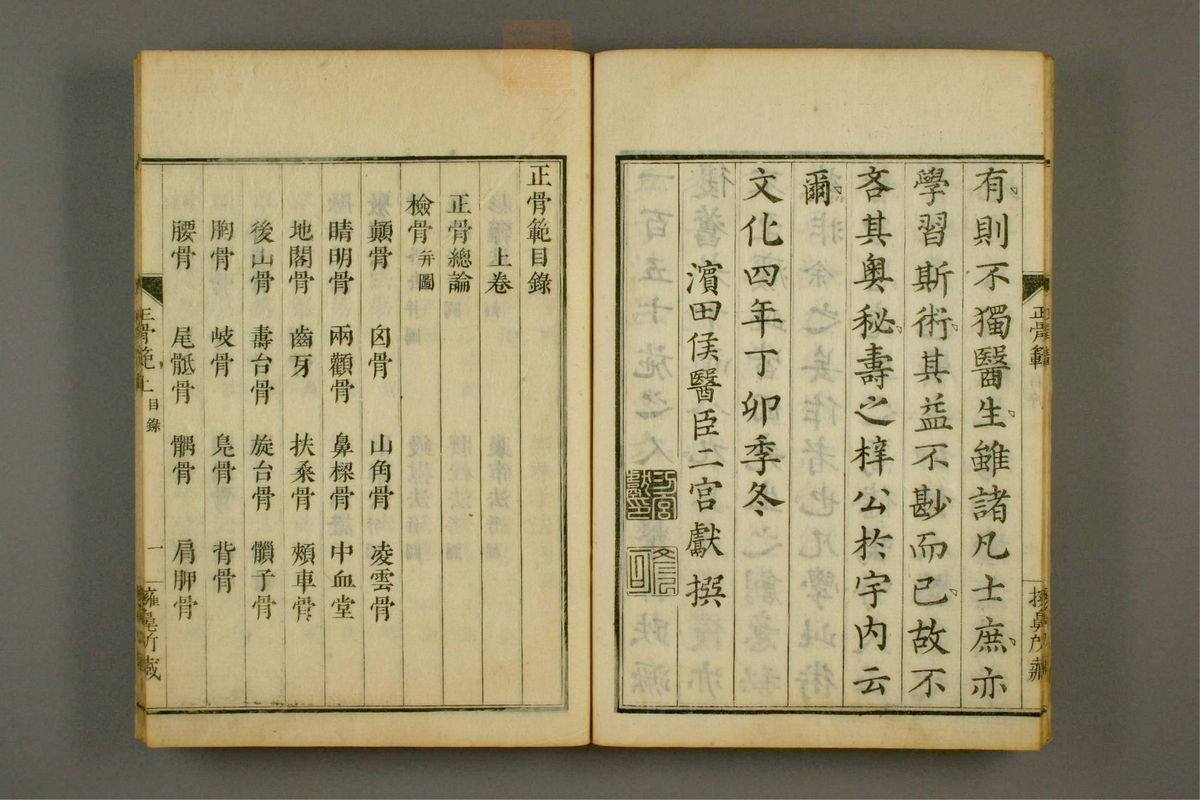 有則不獨醫生雖諸凡士庶亦
學習斯術其益不尠而已故不
吝其奧秘壽之梓公於宇內云
爾
文化四年丁卯季冬
濱田侯醫臣二宮獻撰
正骨範
正骨範目錄
上卷
正骨總論
檢骨并圖
顛骨 囟骨 山角骨 凌雲骨
睛明骨 兩顴骨 鼻樑骨 中血堂
地閣骨 齒牙 扶桑骨 頰車骨
後山骨 壽台骨 旋台骨 髃子骨
胸骨 岐骨 鳧骨 背骨
腰骨 尾骶骨 髃骨 肩胛骨
正骨範上 目錄 一